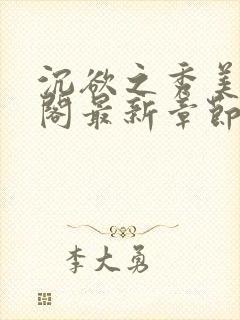 沉欲之秀美
阁最新章节
李大勇